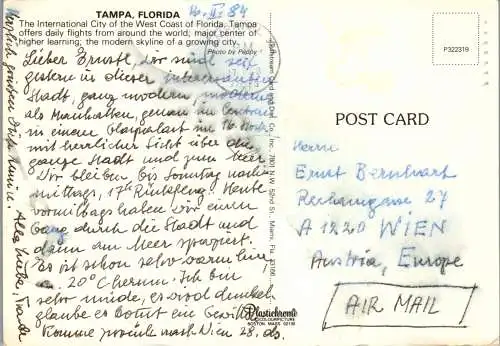 TAMPA, FLORIDA
The International City of the West Coast of Florida, Tampa
offers daily flights from around the world; major center of
higher learning; the modern skyline of a growing city.
Photo by Peppy
16. II. 84
Lieber Ernstl, wir sind seit
gestern in dieser interessanten
Stadt, ganz modern, moderner
als Manhattan, genau im Centrum
in einem Glaspalast im 16. Stock
mit herrlicher Sicht über die
ganze Stadt und zum Meer.
Wir bleiben bis Sonntag nach-
mittags, 17h Rückflug. Heute
vormittags haben wir einen
Gang durch die Stadt und
dann am Meer
Es ist schon sehr warm hier,
ca. 20°C herum. Ich bin
sehr müde, es wird dunkel,
glaube es kommt ein Gewitter.
Komme zurück nach Wien 28. ds.
Alles Liebe,
Herzlich grüßen
P322319
POST CARD
Herrn
Ernst Bernhart
Rechengasse 27
A 1220 WIEN
Austria, Europe
AIR MAIL
Card and Dist. Co., Inc., 7801 N.W. 52nd St., Miami, Fla. 33166
Plastichrome
COLOURPICTURE
BOSTON, MASS. 02130